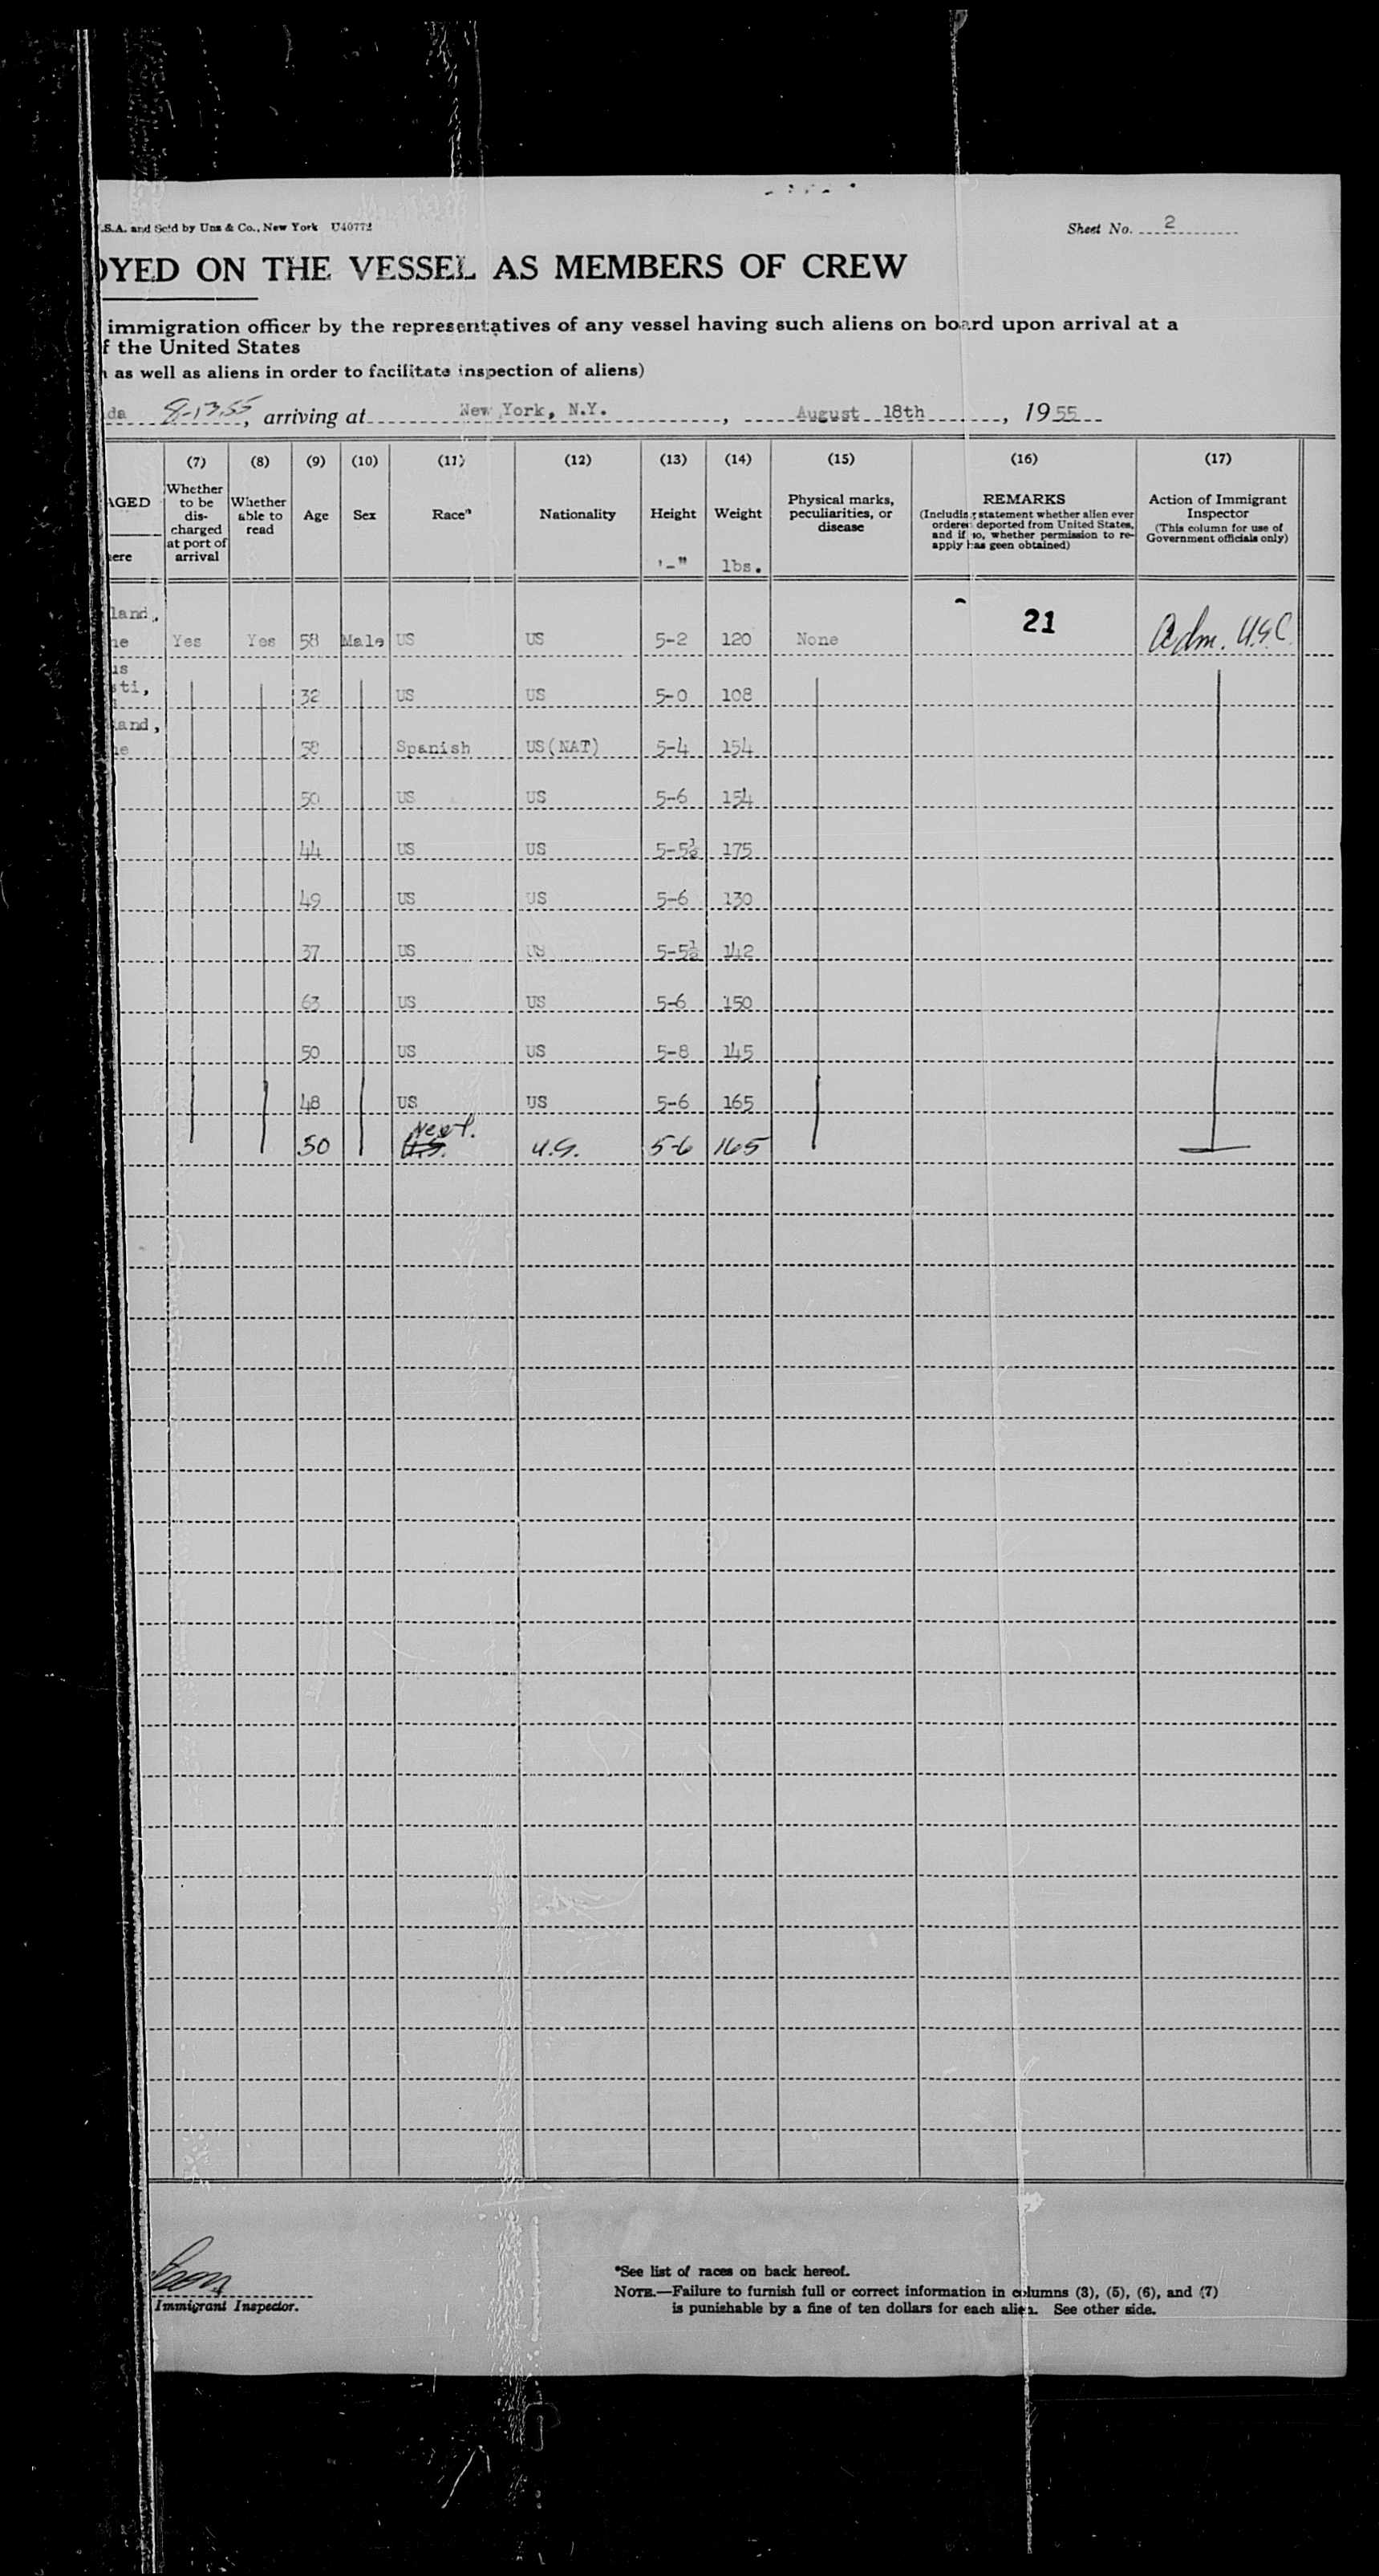 .S.A. and Sold by Unz & Co., New York U40772
Sheet No. 2
OYED ON THE VESSEL AS MEMBERS OF CREW
immigration officer by the representatives of any vessel having such aliens on board upon arrival at a
f the United States
as well as aliens in order to facilitate inspection of aliens)
da 8-13-55, arriving at New York, N.Y., August 18th, 1955
AGED
ere
(7) Whether to be dis-charged at port of arrival
(8) Whether able to read
(9) Age
(10) Sex
(11) Race*
(12) Nationality
(13) Height '-"
(14) Weight lbs.
(15) Physical marks, peculiarities, or disease
(16) REMARKS (Including statement whether alien ever ordered deported from United States, and if so, whether permission to re-apply has geen obtained)
(17) Action of Immigrant Inspector (This column for use of Government officials only)
land,
ne Yes Yes 58 Male US US 5-2 120 None 21 Adm. USC
us
sti, 32 US US 5-0 108
and,
ne 58 Spanish US(NAT) 5-4 154
50 US US 5-6 154
44 US US 5-5½ 175
49 US US 5-6 130
37 US US 5-5½ 142
63 US US 5-6 150
50 US US 5-8 145
48 US US 5-6 165
50 U.S. U.S. 5-6 165
Immigrant Inspector.
*See list of races on back hereof.
NOTE.—Failure to furnish full or correct information in columns (3), (5), (6), and (7)
is punishable by a fine of ten dollars for each alien. See other side.